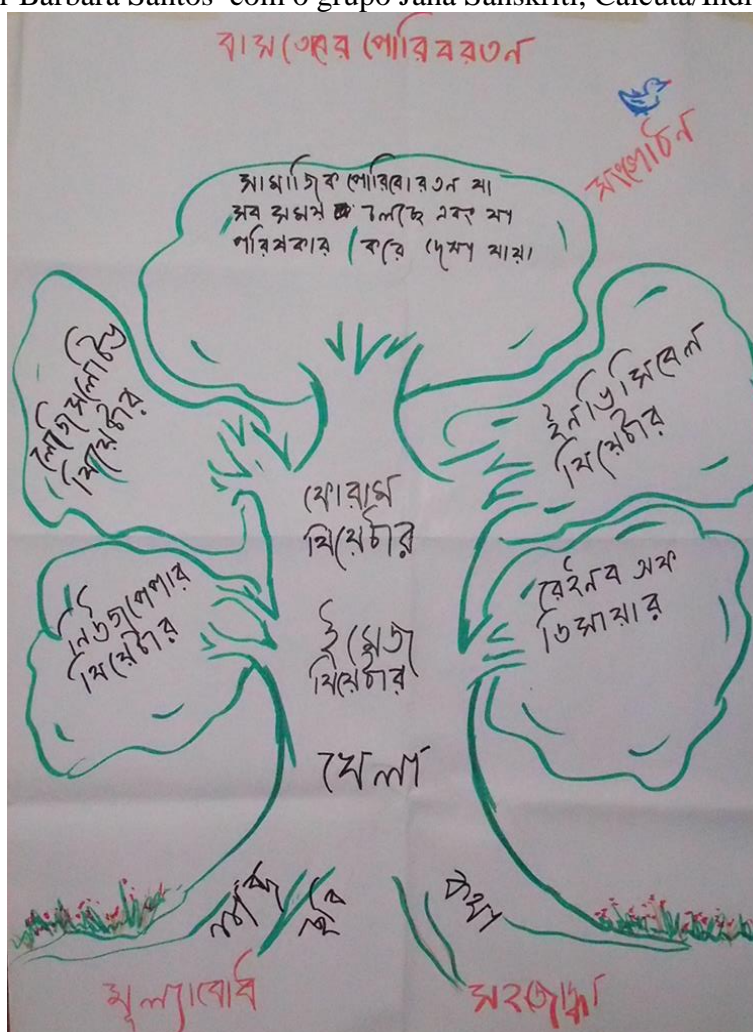 Bárbara Santos com o grupo Jana Sanskriti, Calcutá/Indi
পোরিবরতন
সামাজিক পোরিবোরতন যা
সব সময় চলছে এবং যা
পরিষকার করে দেখা যায়।
লেজিসলেটিভ
থিয়েটার
ইনভিসিবেল
থিয়েটার
ফোরাম
থিয়েটার
নিউজপেপার
থিয়েটার
রেইনব অফ
ডিসায়ার
ইমেজ
থিয়েটার
খেলা
শব্দ
ছবি
কথা
মূল্যাবোধ